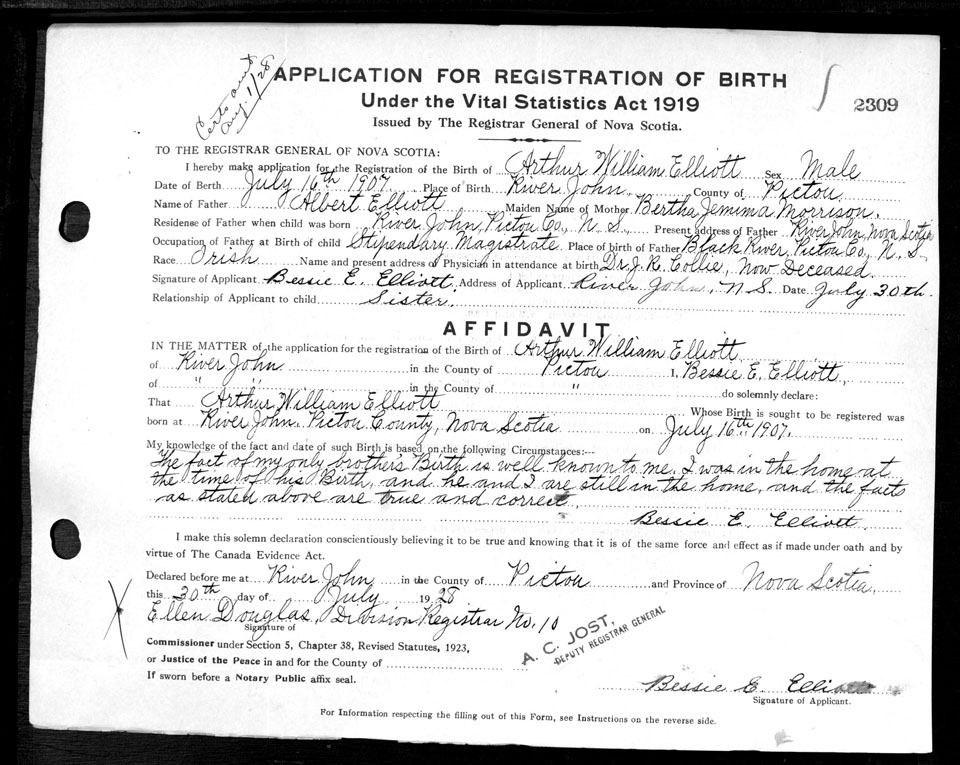 Certs sent
Aug. 1/28
APPLICATION FOR REGISTRATION OF BIRTH
Under the Vital Statistics Act 1919
2309
Issued by The Registrar General of Nova Scotia.
TO THE REGISTRAR GENERAL OF NOVA SCOTIA:
I hereby make application for the Registration of the Birth of Arthur William Elliott Sex Male
Date of Berth July 16th 1907. Place of Birth River John, County of Pictou
Name of Father Albert Elliott Maiden Name of Mother Bertha Jemima Morrison.
Residense of Father when child was born River John, Pictou Co., N. S., Present address of Father River John, Nova Scotia
Occupation of Father at Birth of child Stipendary Magistrate. Place of birth of Father Black River, Pictou Co., N. S.
Race Irish Name and present address of Physician in attendance at birth Dr. J. R. Collie, Now Deceased.
Signature of Applicant Bessie E. Elliott. Address of Applicant River John, N S. Date July 30th.
Relationship of Applicant to child Sister.
AFFIDAVIT
IN THE MATTER of the application for the registration of the Birth of Arthur William Elliott
of River John in the County of Pictou I, Bessie E. Elliott,
of " " in the County of " do solemnly declare:
That Arthur William Elliott Whose Birth is sought to be registered was
born at River John, Pictou County, Nova Scotia on July 16th 1907.
My knowledge of the fact and date of such Birth is based on the following Circumstances:---
The fact of my only brothers Birth is well known to me, I was in the home at
the time of his Birth, and he and I are still in the home, and the facts
as stated above are true and correct.
Bessie E. Elliott.
I make this solemn declaration conscientiously believing it to be true and knowing that it is of the same force and effect as if made under oath and by
virtue of The Canada Evidence Act.
Declared before me at River John, in the County of Pictou and Province of Nova Scotia,
this 30th day of July 1928
Ellen Douglas, Division Registrar No. 10
Signature of
A. C. JOST,
DEPUTY REGISTRAR GENERAL
Commissioner under Section 5, Chapter 38, Revised Statutes, 1923,
or Justice of the Peace in and for the County of
If sworn before a Notary Public affix seal.
Bessie E. Elliott
Signature of Applicant.
For Information respecting the filling out of this Form, see Instructions on the reverse side.